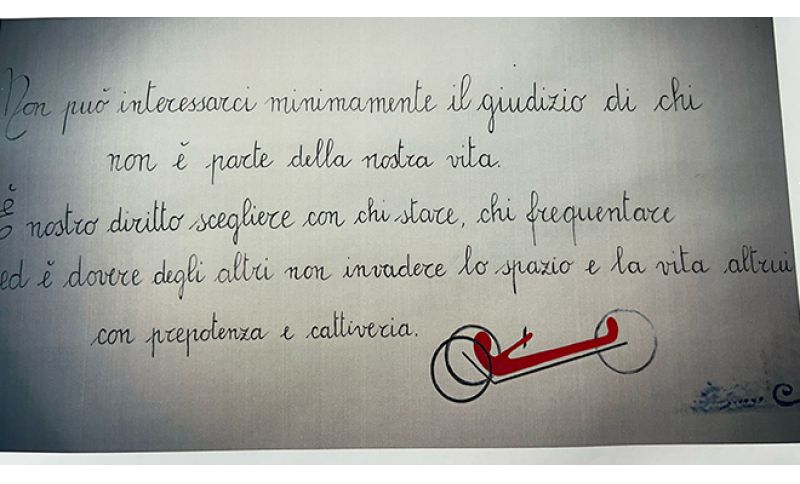 Non può interessarci minimamente il giudizio di chi
non è parte della nostra vita.
È nostro diritto scegliere con chi stare, chi frequentare
ed è dovere degli altri non invadere lo spazio e la vita altrui
con prepotenza e cattiveria.